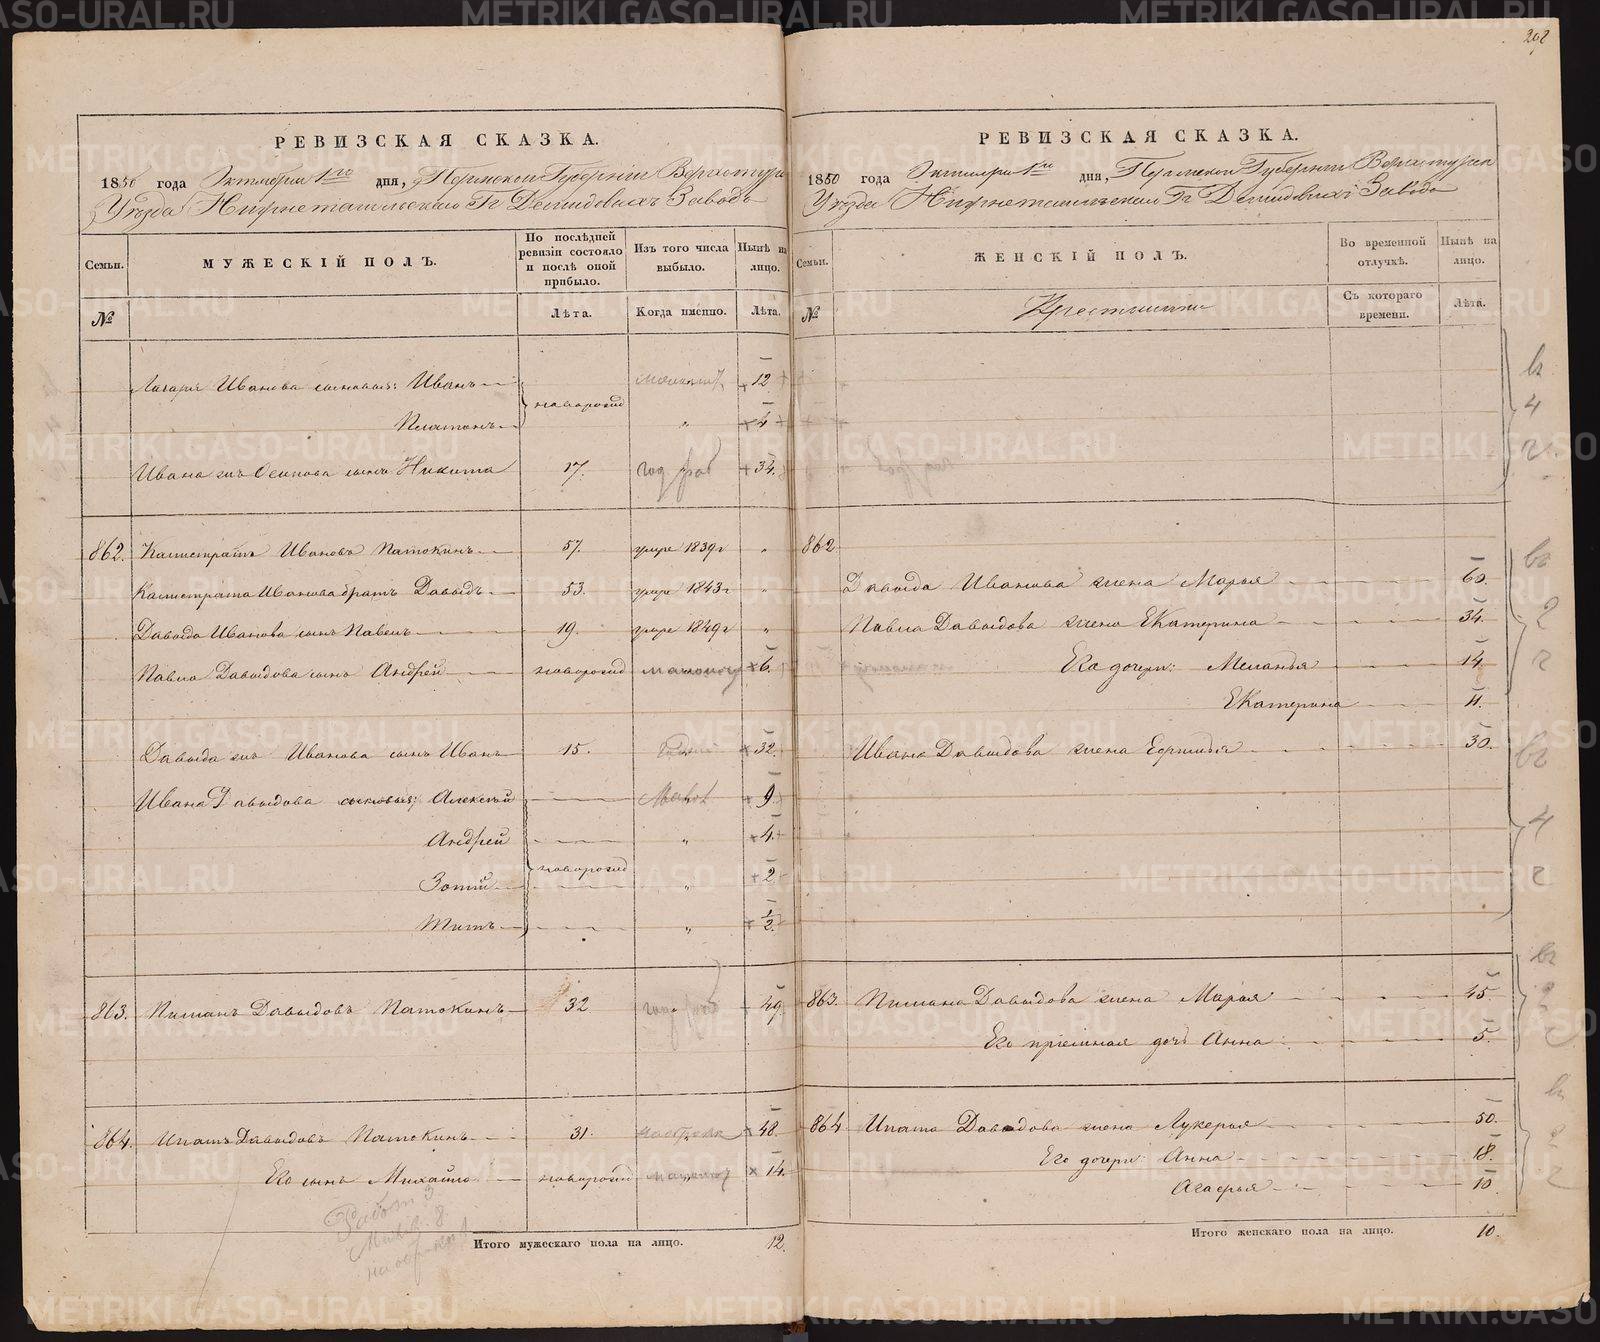 РЕВИЗСКАЯ СКАЗКА.
1850 года Октября 1го дня, Пермской Губернiи Верхотурск
Уѣзда Нижнетагильскаго Гг Демидовыхъ Завода
Семьи. МУЖЕСКIЙ ПОЛЪ. По послѣдней ревизiи состояло и послѣ оной прибыло. Изъ того числа выбыло. Нынѣ на лицо.
№ Лѣта. Когда именно. Лѣта.
Лазаря Иванова сыновья: Иванъ 12
новорожд
Платонъ 4
Ивана жъ Осипова сынъ Никита 17. год раб 34.
862. Калистратъ Ивановъ Патокинъ 57. умре 1839 г "
Калистрата Иванова братъ Давыдъ 53. умре 1843 г "
Давыда Иванова сынъ Павелъ 19. умре 1849 г "
Павла Давыдова сынъ Андрей новорожд малолет 6.
Давыда жъ Иванова сынъ Иванъ 15. 32.
Ивана Давыдова сыновья: Алексей 9.
Андрей " 4.
новорожд
Зотiй " 2
Титъ " 1/2
863. Пиманъ Давыдовъ Патокинъ 32 49
864. Ипатъ Давыдовъ Патокинъ 31. 48.
Его сынъ Михайло новорожд малолет 14.
Работ 3
Малол. 8.
Итого мужескаго пола на лицо. 12.
202
РЕВИЗСКАЯ СКАЗКА.
1850 года Октября 1го дня, Пермской Губернiи Верхотурск
Уѣзда Нижнетагильскаго Гг Демидовыхъ Завода
Семьи. ЖЕНСКIЙ ПОЛЪ. Во временной отлучкѣ. Нынѣ на лицо.
№ Крестьянки Съ котораго времени. Лѣта.
862
Давыда Иванова жена Марья 60.
Павла Давыдова жена Екатерина 34.
Его дочери: Меланья 14.
Екатерина 11.
Ивана Давыдова жена 30.
863. Пимана Давыдова жена Марья 45.
Его прiемная дочь Анна 5.
864 Ипата Давыдова жена Лукерья 50.
Его дочери: Анна 18.
Агафья 10
Итого женскаго пола на лицо. 10.
METRIKI.GASO-URAL.RU